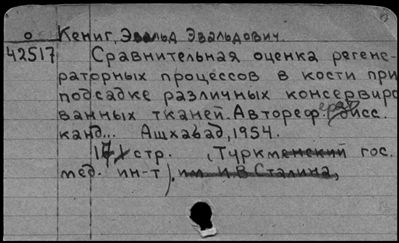 о Кениг, Эвальд Эвальдович.
42517 Сравнительная оценка регене-
раторных процессов в кости при
подсадке различных консервиро
ванных тканей. Автореферат дисс.
канд... Ашхабад, 1954.
стр. (Туркменский гос.
мед. ин-т). им. И.В. Сталина,